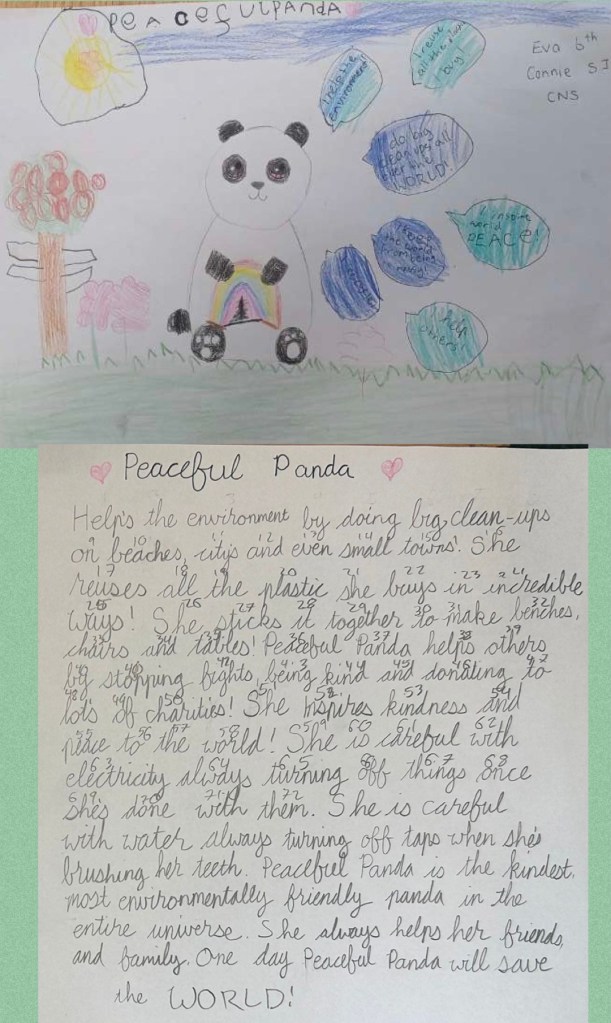 PEACEFULPANDA
Eva 6th
Connie SI
CNS
I help the
environment
I reuse
all the
buy
do big
clean ups all
over the
WORLD!
I inspire
world
PEACE!
the world
from being
help
others!
Peaceful Panda
Help's the environment by doing big clean-ups
on beaches, city's and even small towns! She
reuses all the plastic she buys in incredible
ways! She sticks it together to make benches,
chairs and tables! Peaceful Panda helps others
by stopping fights, being kind and donating to
lots of charities! She inspires kindness and
peace to the world! She is careful with
electricity always turning off things once
she's done with them. She is careful
with water always turning off taps when she's
brushing her teeth. Peaceful Panda is the kindest,
most environmentally friendly panda in the
entire universe. She always helps her friends,
and family. One day Peaceful Panda will save
the WORLD!